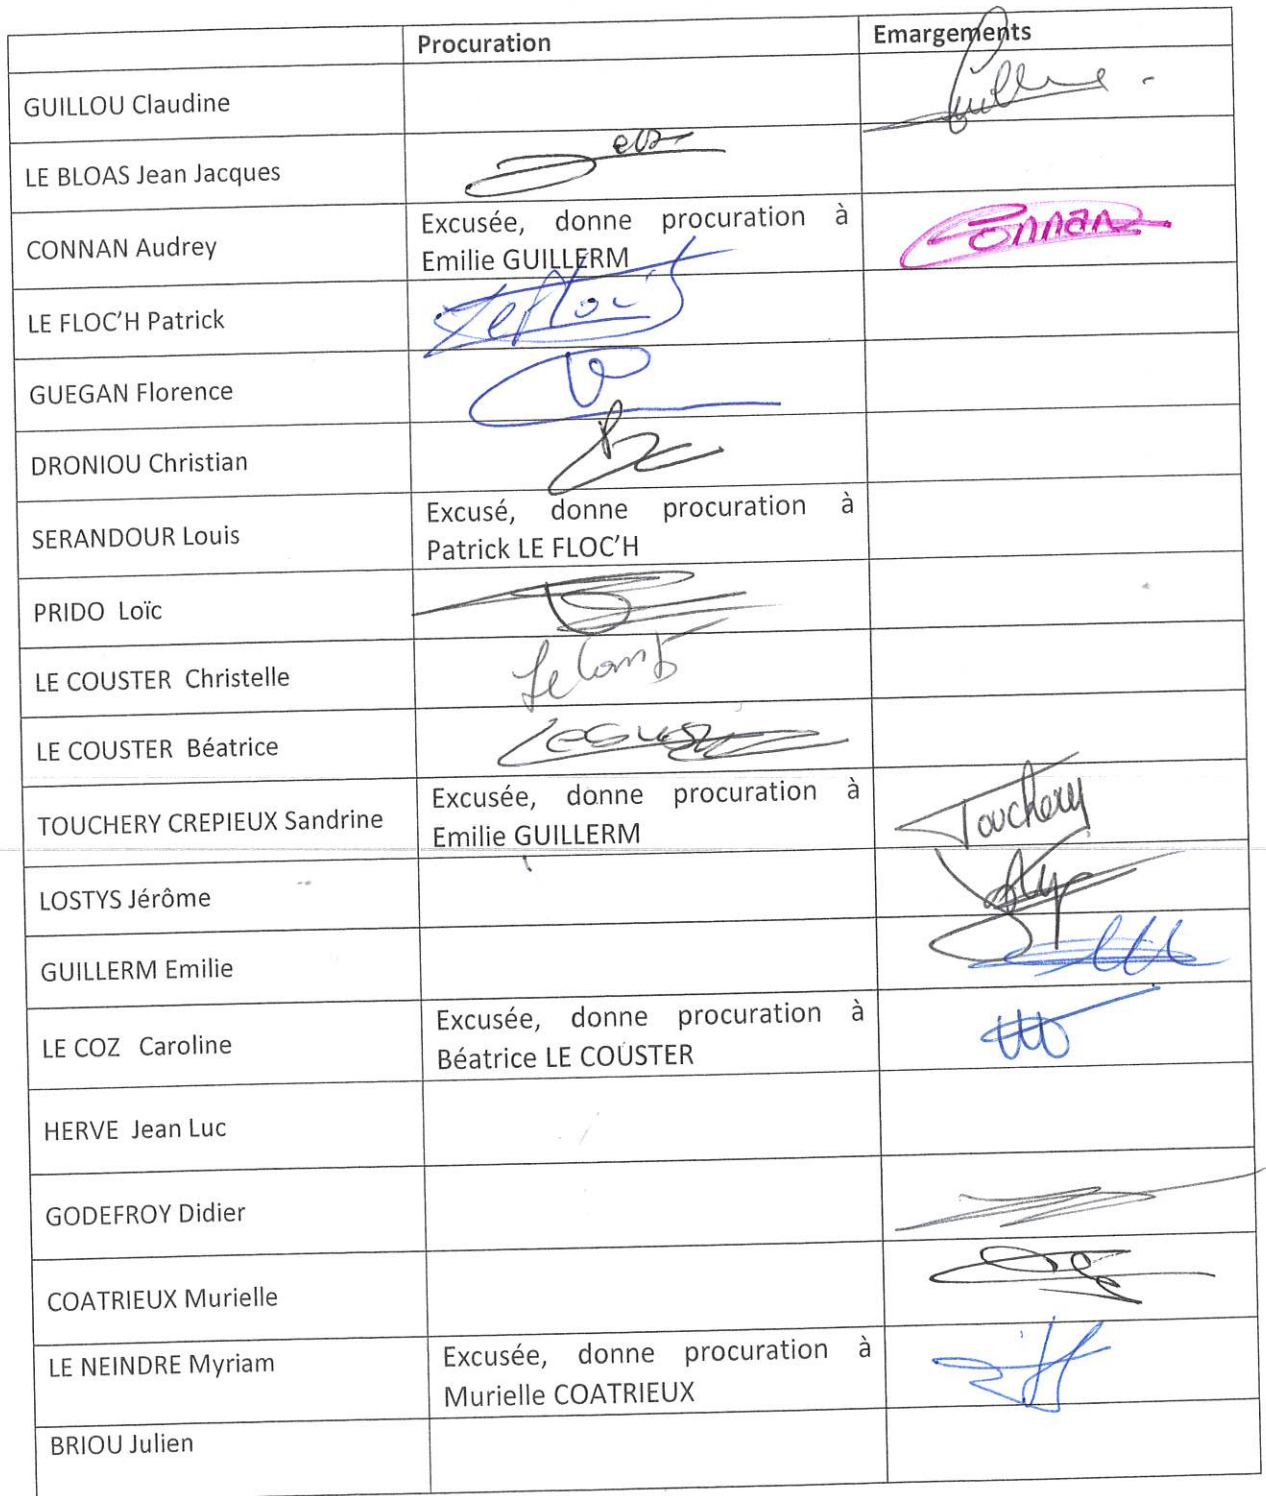 Procuration Emargements
GUILLOU Claudine
LE BLOAS Jean Jacques
CONNAN Audrey
Excusée, donne procuration à
Emilie GUILLERM
Connan
LE FLOC'H Patrick
GUEGAN Florence
DRONIOU Christian
SERANDOUR Louis
Excusé, donne procuration à
Patrick LE FLOC'H
PRIDO Loïc
LE COUSTER Christelle
LE COUSTER Béatrice
TOUCHERY CREPIEUX Sandrine
Excusée, donne procuration à
Emilie GUILLERM
Touchery
LOSTYS Jérôme
GUILLERM Emilie
LE COZ Caroline
Excusée, donne procuration à
Béatrice LE COUSTER
HERVE Jean Luc
GODEFROY Didier
COATRIEUX Murielle
LE NEINDRE Myriam
Excusée, donne procuration à
Murielle COATRIEUX
BRIOU Julien